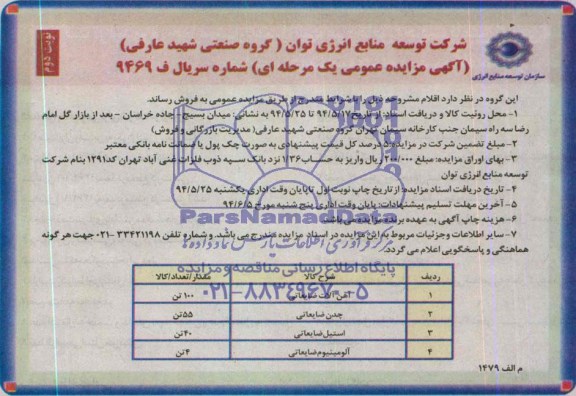 نوبت دوم
شرکت توسعه منابع انرژی توان ( گروه صنعتی شهید عارفی)
(آگهی مزایده عمومی یک مرحله ای) شماره سریال ف ۹۴۶۹
سازمان توسعه منابع انرژی
این گروه در نظر دارد اقلام مشروحه ذیل را با شرایط مندرج از طریق مزایده عمومی به فروش رساند.
۱- محل روئیت کالا و دریافت اسناد: از تاریخ ۹۴/۵/۱۷ تا ۹۴/۵/۲۵ به نشانی: میدان بسیج - جاده خراسان - بعد از بازار گل امام
رضا سه راه سیمان جنب کارخانه سیمان تهران گروه صنعتی شهید عارفی( مدیریت بازرگانی و فروش)
۲- مبلغ تضمین شرکت در مزایده: ۵ درصد کل قیمت پیشنهادی به صورت چک پول یا ضمانت نامه بانکی معتبر
۳- بهای اوراق مزایده: مبلغ ۲۰۰/۰۰۰ ریال واریز به حساب ۱۳۶ نزد بانک سپه ذوب فلزات غنی آباد تهران کد ۱۲۹۱ بنام شرکت
توسعه منابع انرژی توان
۴- تاریخ دریافت اسناد مزایده: از تاریخ چاپ نوبت اول تا پایان وقت اداری یکشنبه ۹۴/۵/۲۵
۵- آخرین مهلت تسلیم پیشنهادات: پایان وقت اداری پنج شنبه مورخ ۹۴/۶/۵
۶- هزینه چاپ آگهی به عهده برنده مزایده می باشد.
۷- سایر اطلاعات وجزئیات مربوط به این مزایده در اسناد مزایده مندرج می باشد. و شماره تلفن ۳۳۴۲۱۱۹۸ -۰۲۱ جهت هر گونه
هماهنگی و پاسخگویی اعلام می گردد.
ParsNamadData
مرکز فرآوری اطلاعات پارس نماد داده ها
پایگاه اطلاع رسانی مناقصه و مزایده
۰۲۱-۸۸۳۴۹۶۷۰-۵
ردیف شرح کالا مقدار/تعداد/کالا
۱ آهن آلات ضایعاتی ۱۰۰ تن
۲ چدن ضایعاتی ۵۵ تن
۳ استیل ضایعاتی ۴۰ تن
۴ آلومینیوم ضایعاتی ۴ تن
م الف ۱۴۷۹